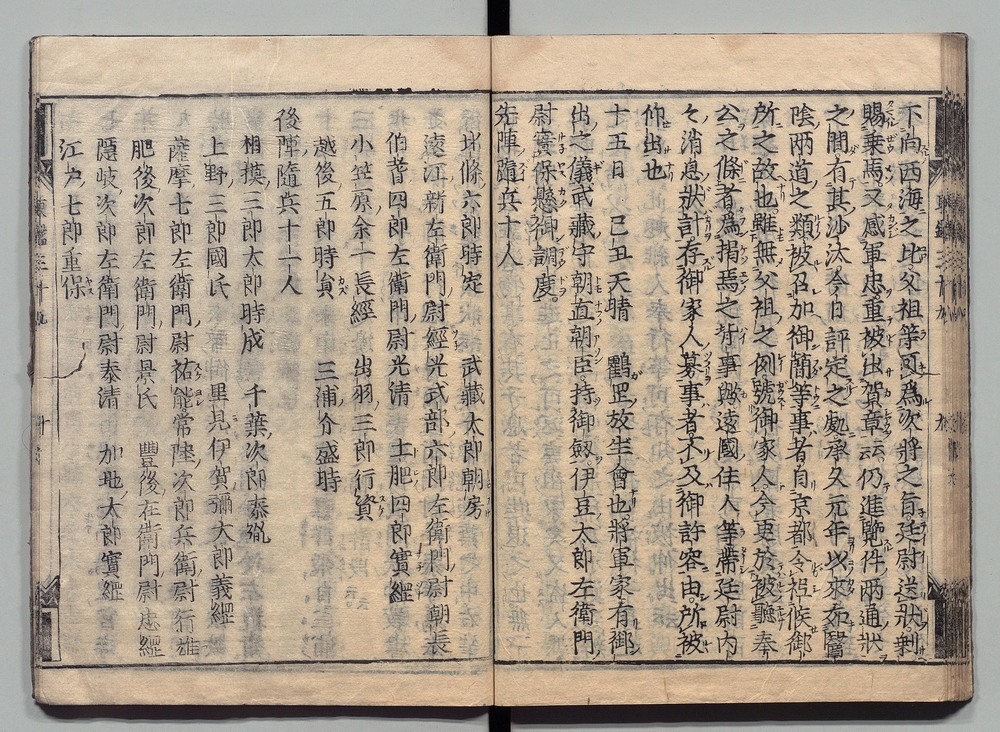 下向西海之比父祖等可爲次將之旨廷尉送狀剩
賜乗馬又感軍忠重被出賀章云仍進覽件兩通狀
之間有其沙汰今日評定之處承久元年以來
陰兩道之類被召加御簡等事者自京都令祗候御
所之故也雖無父祖之例號御家人今更於被聽奉
公之條者爲揖焉之事歟遠國住人等帶廷尉内
々消息狀計存御家人募事者不及御許容由所被
仰出也
十五日 己丑天晴 鸖罡放生會也將軍家有御
出之儀武藏守朝直朝臣持御劔伊豆太郎左衛門
尉實保懸御調度
先陣隨兵十人
北條六郎時定 武藏太郎朝房
遠江新左衛門尉經光式部六郎左衛門尉朝長
伯耆四郎左衛門尉光清 土肥四郎實經
小笠原余一長經 出羽三郎行資
越後五郎時員 三浦介盛時
後陣隨兵十一人
相摸三郎太郎時成 千葉次郎泰胤
上野三郎國氏 里見伊賀彌太郎義經
薩摩七郎左衛門尉祐能常陸次郎兵衛尉行雄
肥後次郎左衛門尉景氏 豐後左衛門尉忠經
隱岐次郎左衛門尉泰清 加地太郎實經
江戸七郎重保